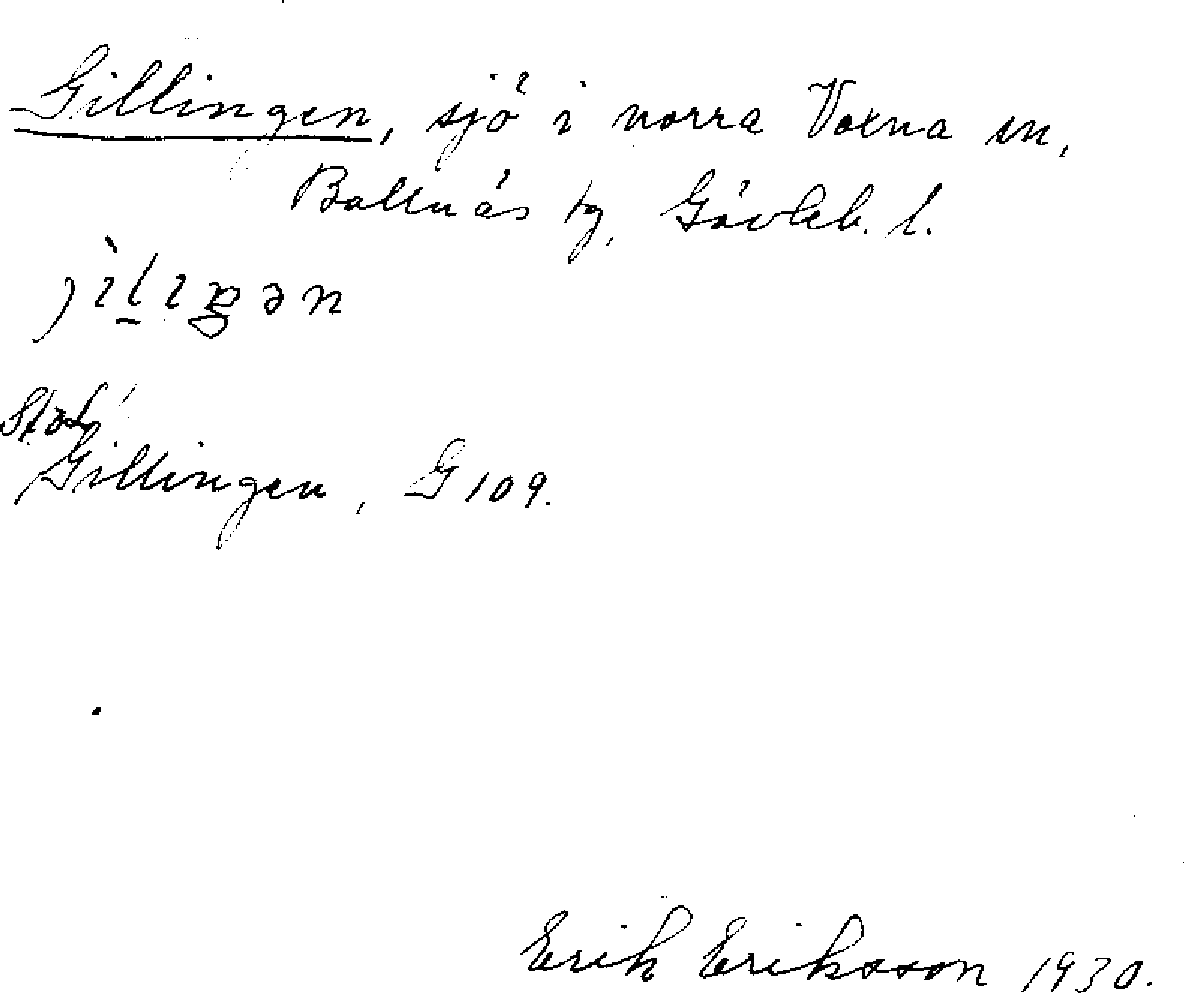 Gillingen, sjö i norra Voxna sn,
Bollnäs tg, Gävleb. l.
Stor
Gillingen, G 109.
Erik Eriksson 1930.